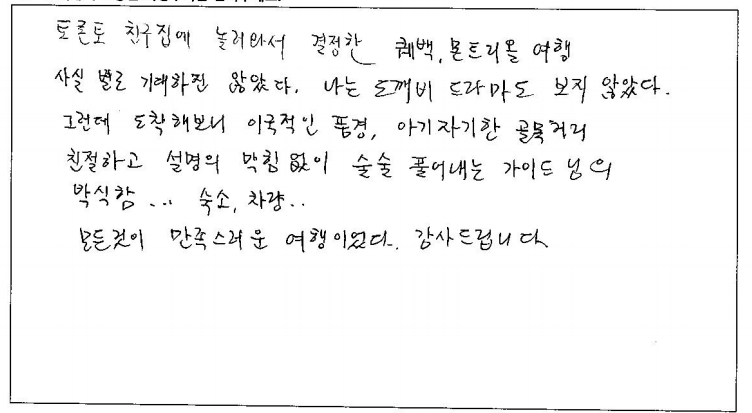 토론토 친구집에 놀러와서 결정한 퀘백, 몬트리올 여행
사실 별로 기대하진 않았다. 나는 도깨비 드라마도 보지 않았다.
그런데 도착해보니 이국적인 풍경, 아기자기한 골목거리
친절하고 설명의 막힘없이 술술 풀어내는 가이드님의
박식함... 숙소, 차량..
모든것이 만족스러운 여행이었다. 감사드립니다